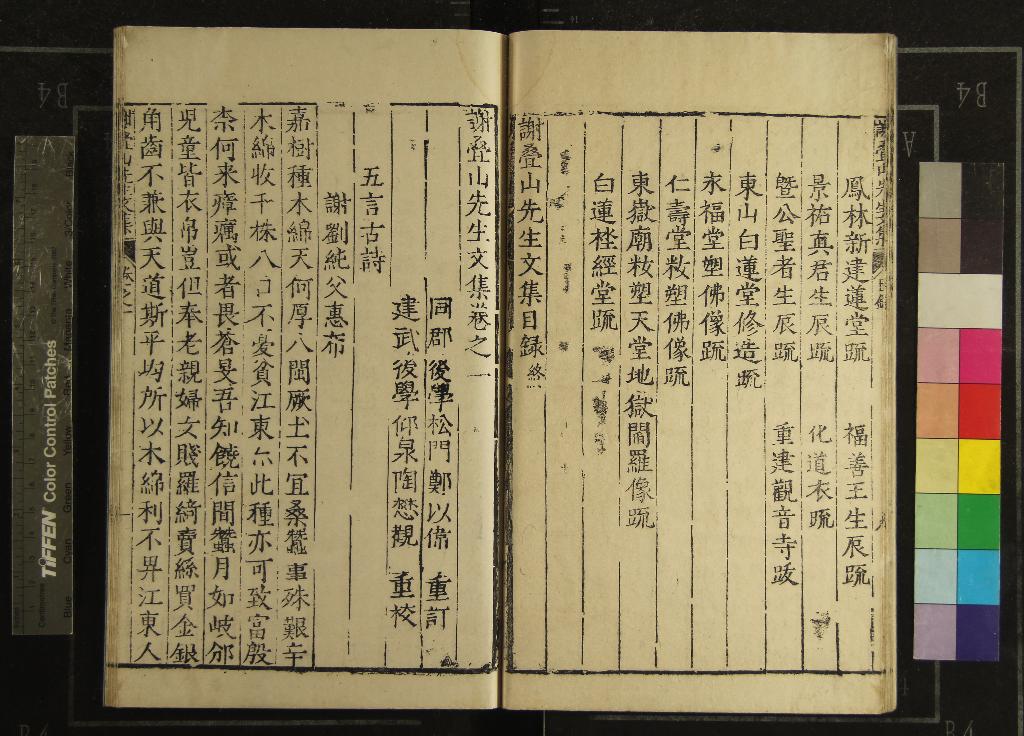 鳳林新建蓮堂䟽　福善王生辰䟽
景祐真君生辰䟽　化道衣䟽
暨公聖者生辰䟽　重建觀音寺䟦
東山白蓮堂修造䟽
永福堂塑佛像䟽
仁壽堂粧塑佛像䟽
東嶽廟粧塑天堂地獄閻羅像䟽
白蓮栓經堂䟽
謝疊山先生文集目録終
謝疊山先生文集卷之一
同郡後學松門鄭以偉　重訂
建武後學仰泉陶懋觀　重校
五言古詩
謝劉純父惠布
嘉樹種木綿天何厚八閩厥土不宜桑蠶事殊艱辛
木綿收千株八口不憂貧江東亦此種亦可致富殷
柰何来瘴癘或者畏蒼旻吾知饒信間蠶月如岐邠
児童皆衣帛豈但奉老親婦女賤羅綺賣絲買金銀
角齒不兼與天道斯平均所以木綿利不畀江東人
謝疊山先生文集　卷之一
TIFFEN Color Control Patches
Blue
Cyan
Green
Yellow
Red
Magenta
White
B4
B4
A